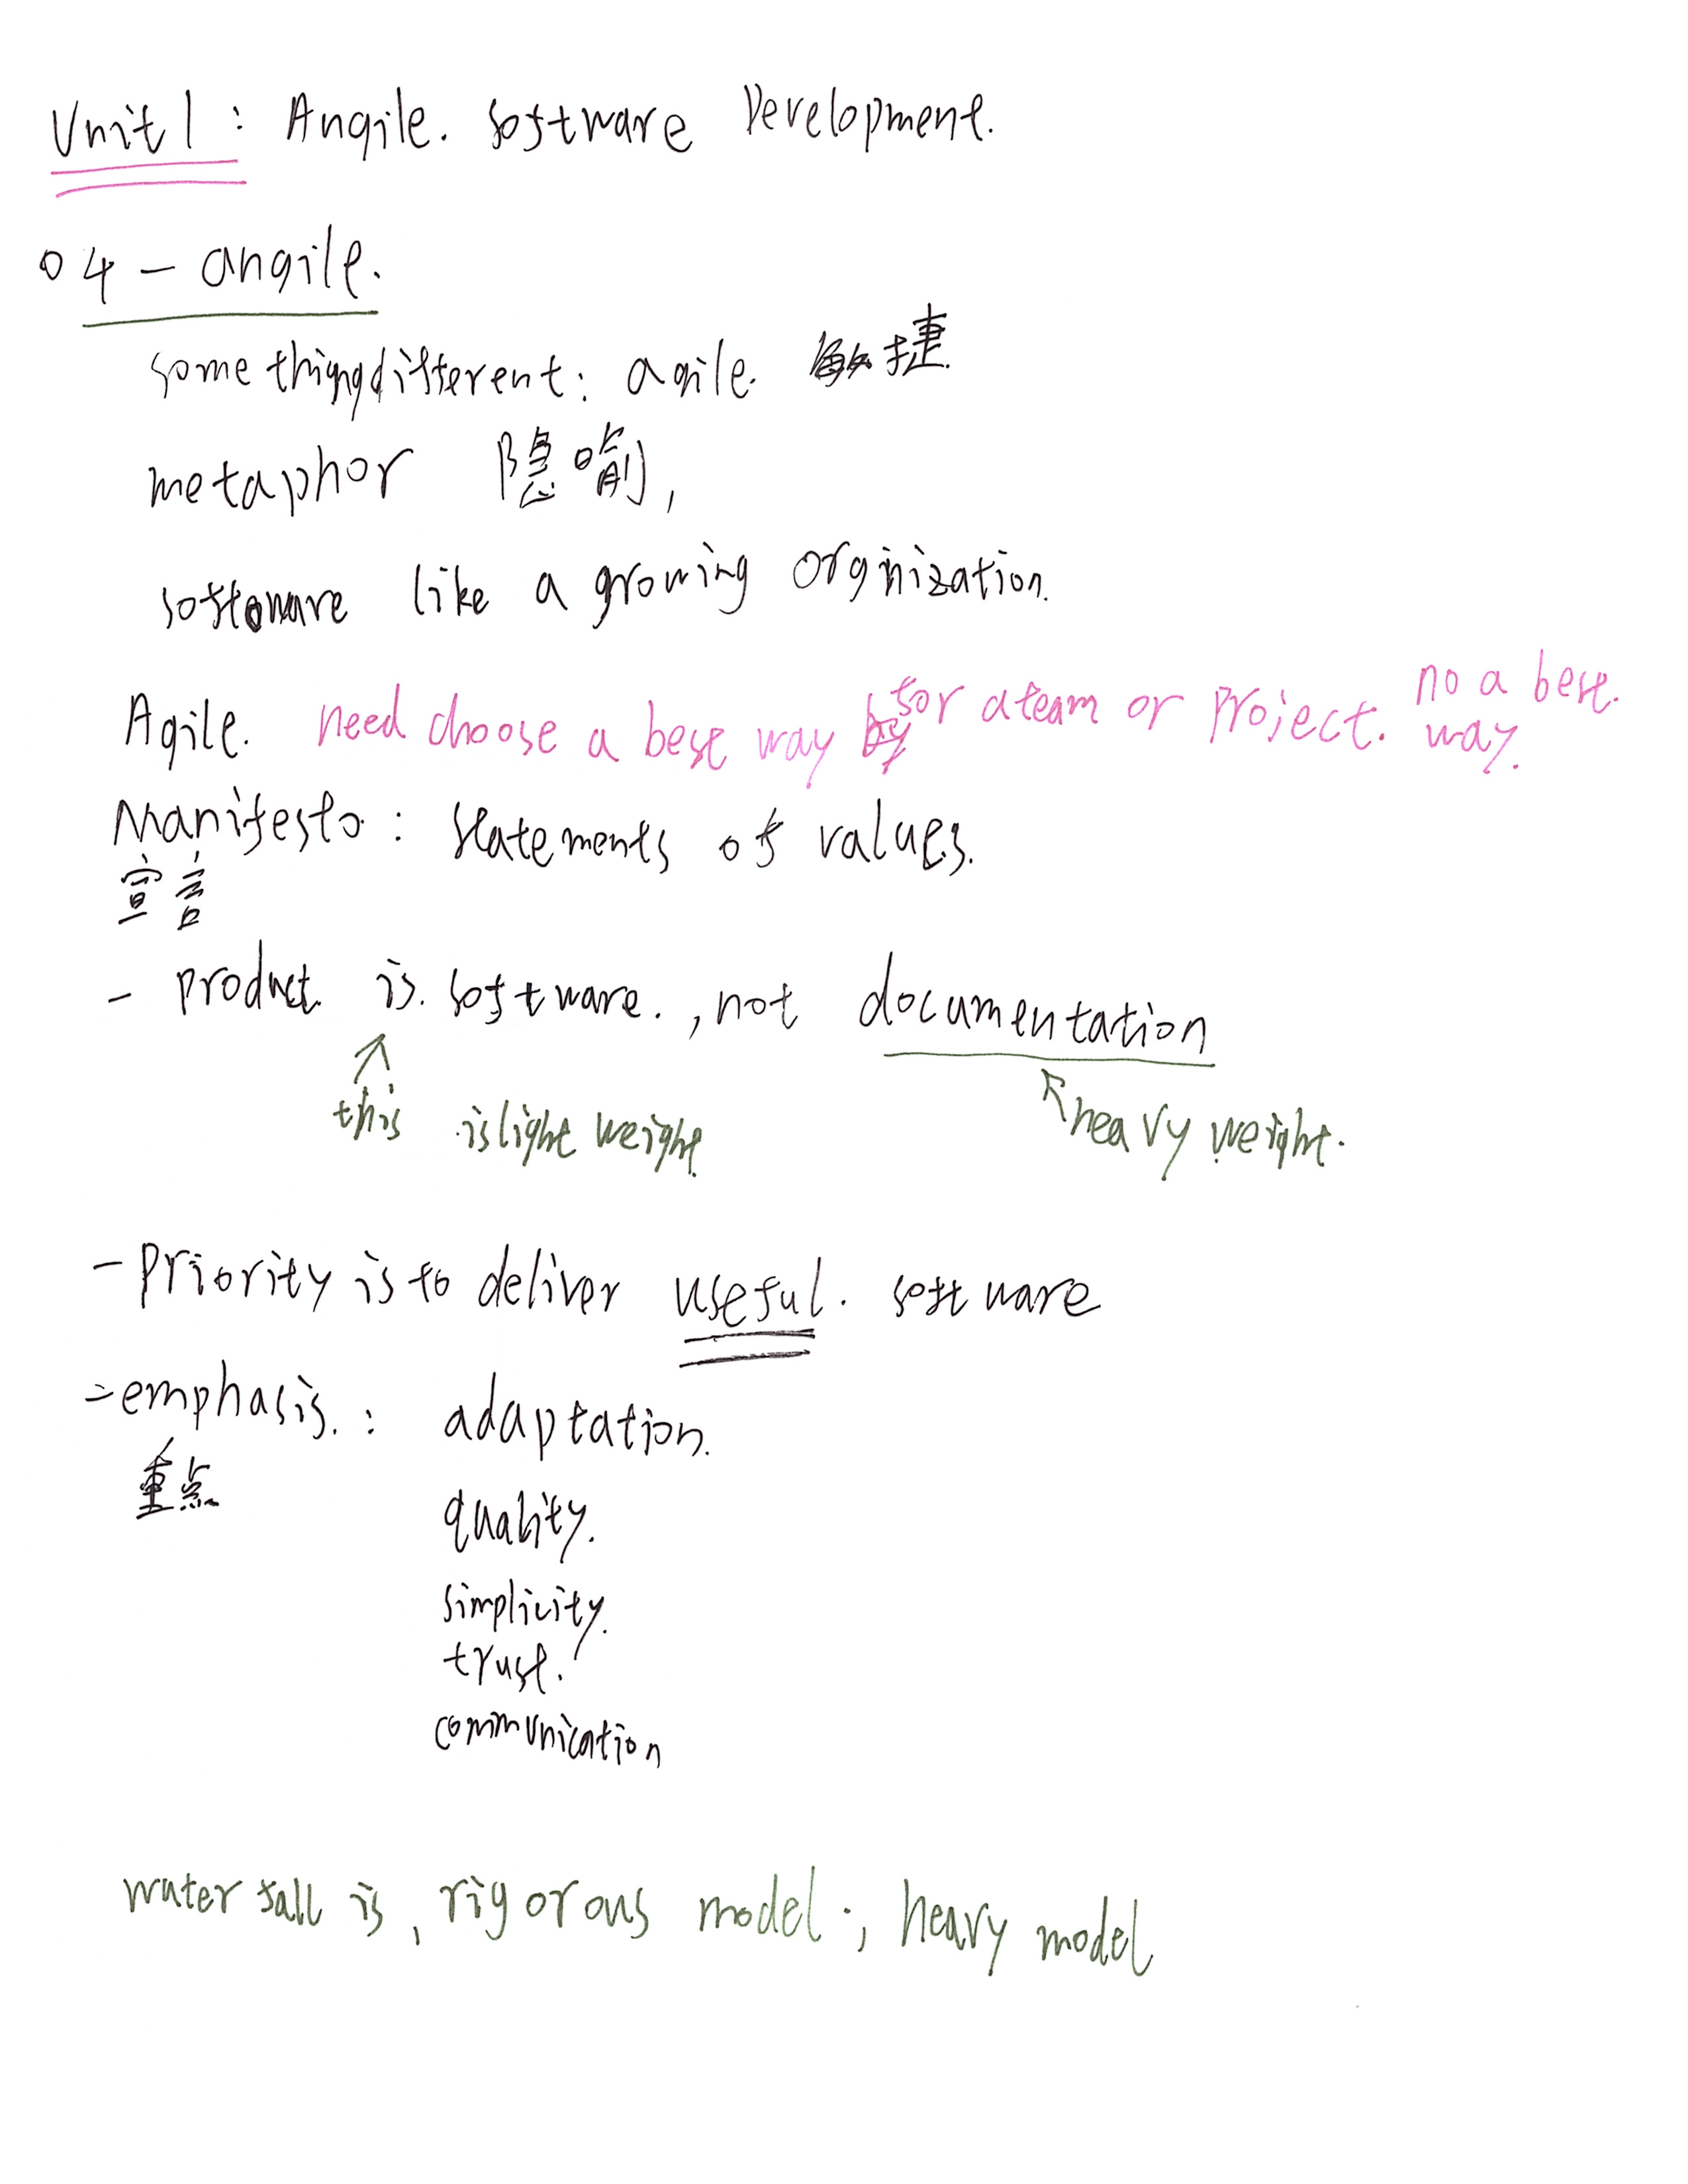 Unit1 : Angile. software Development.
04 - angile.
something different: agile. 敏捷.
metaphor 隐喻,
software like a growing orginization.
Agile. need choose a best way for a team or project. no a best. way.
Manifesto : statements of values.
宣言
- product is software. , not documentation
this is light weight. heavy weight.
- Priority is to deliver useful. software
- emphasis. : adaptation.
重点
quality.
simplicity.
trust.
communication
water fall is, rigorous model ; heavy model